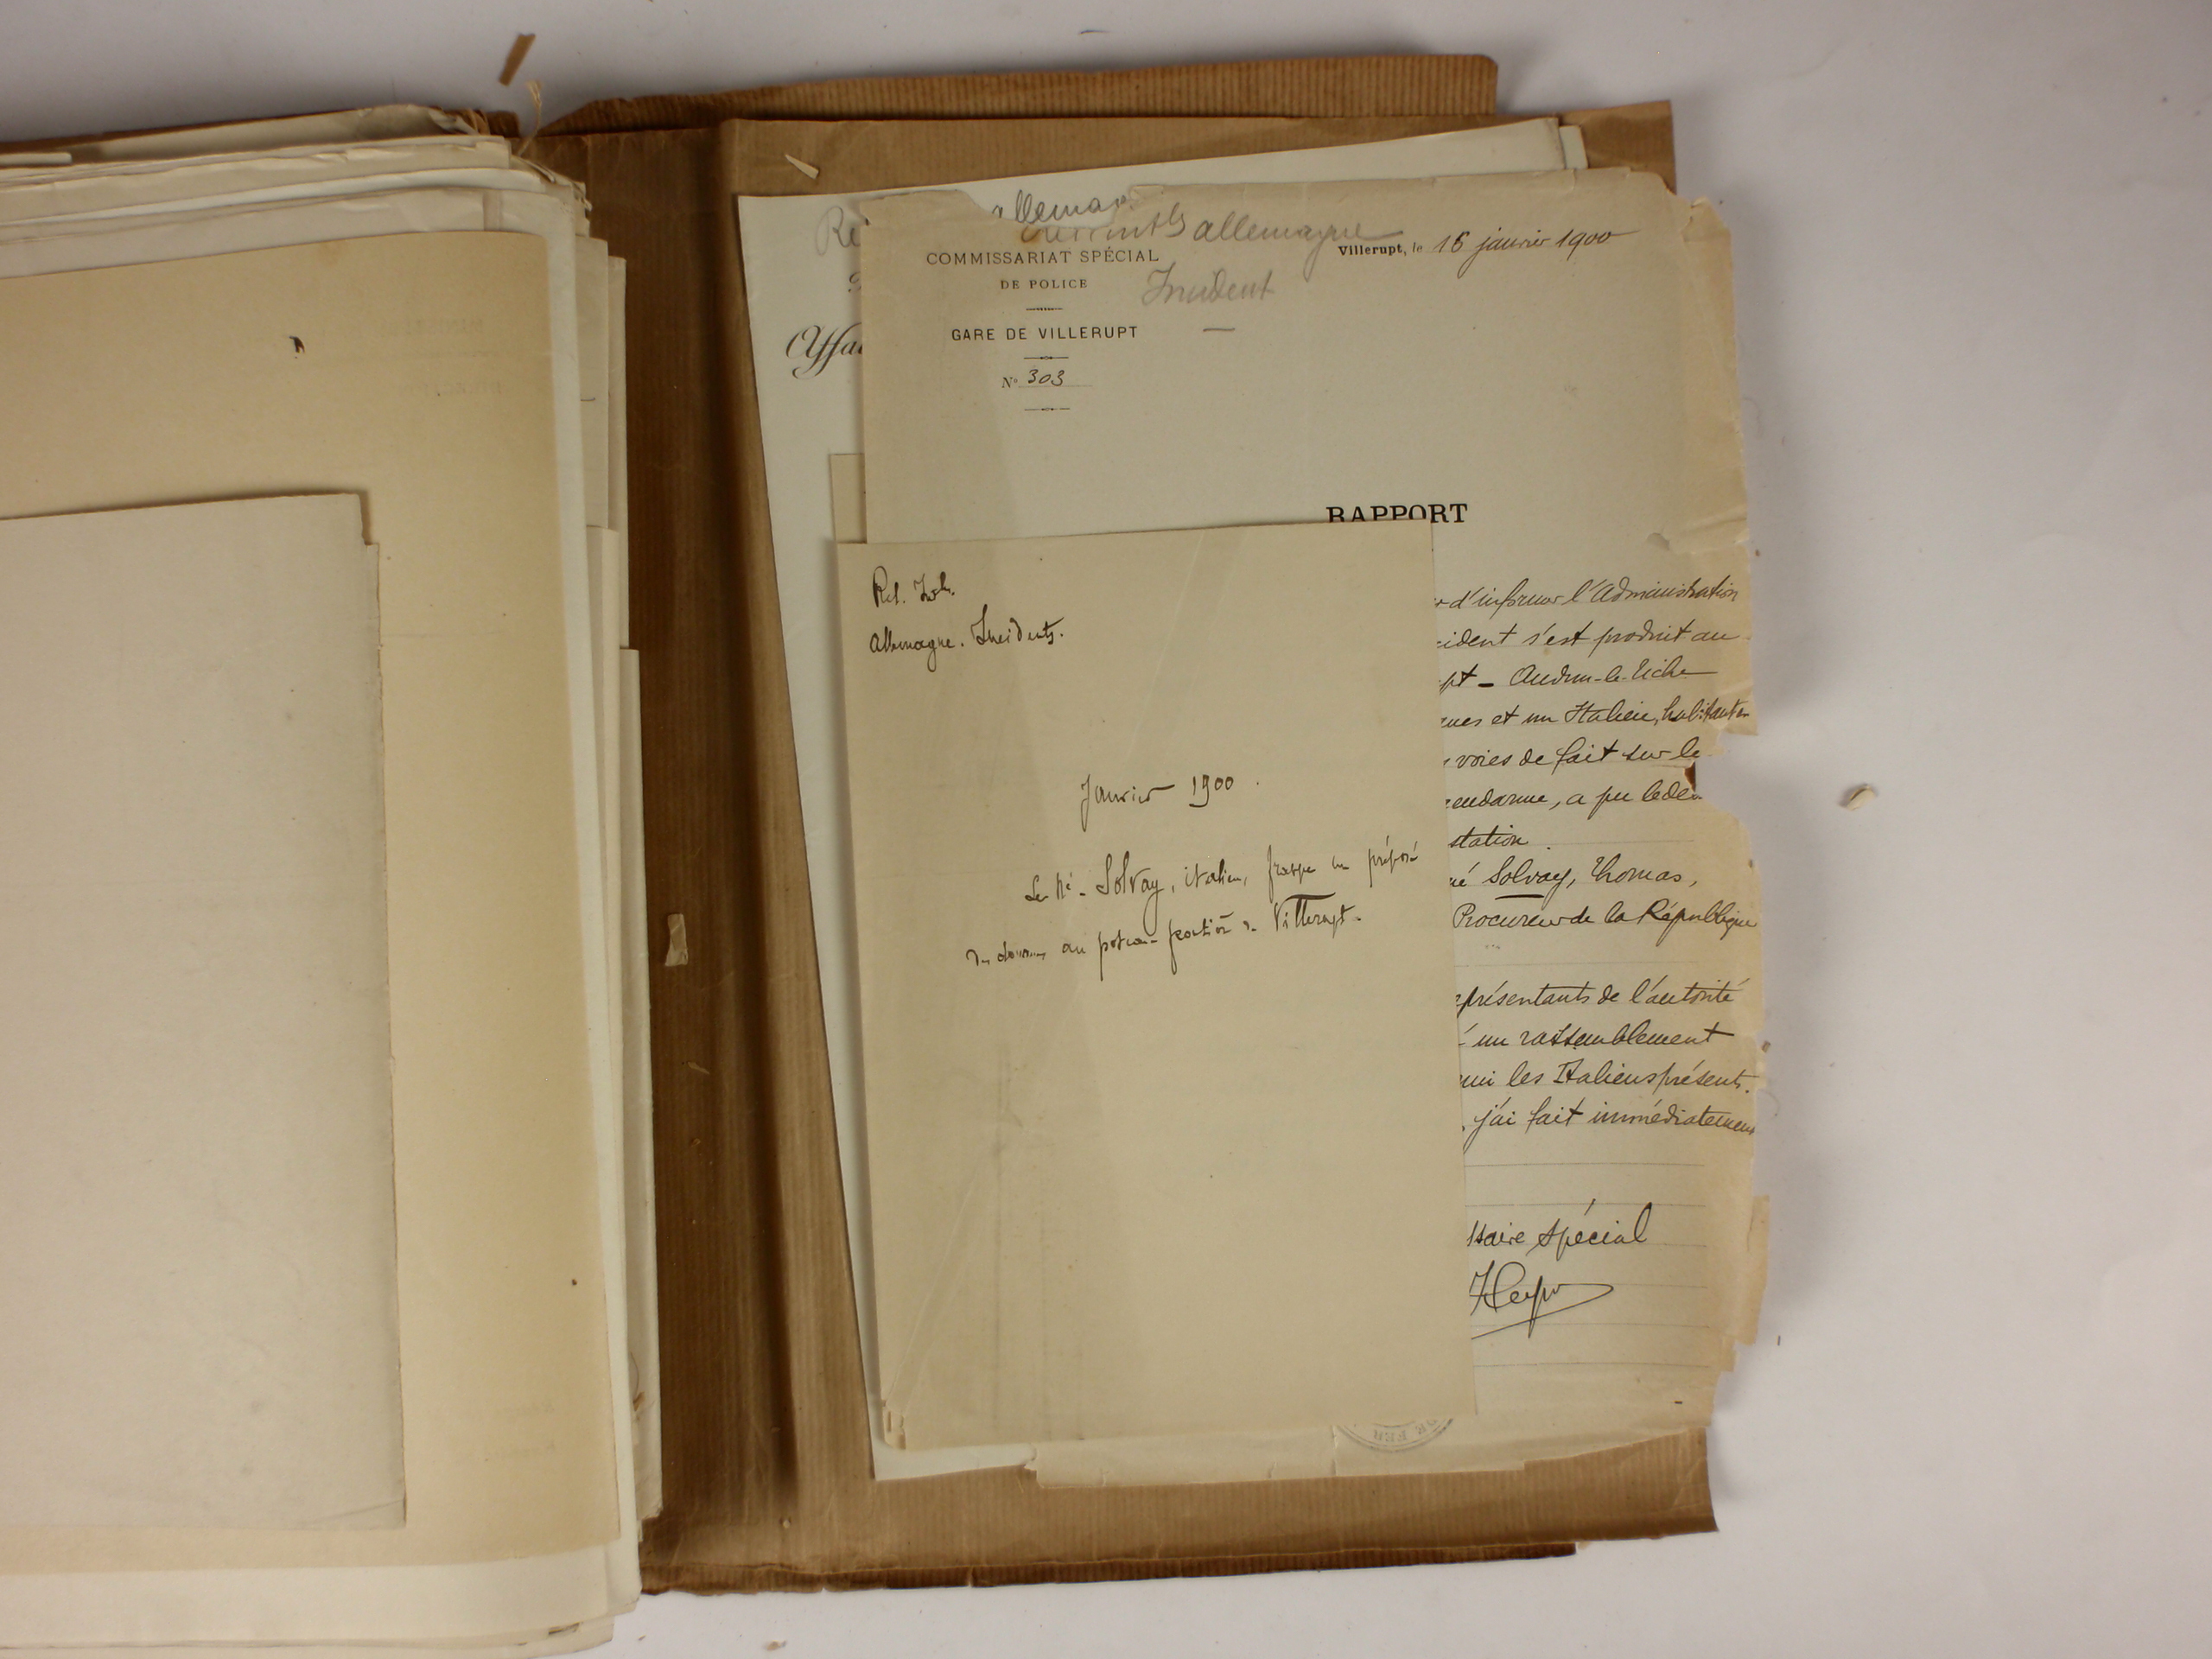 allemagne
Incidents allemagne
COMMISSARIAT SPÉCIAL
DE POLICE
Incident
GARE DE VILLERUPT
Nº 303
Villerupt, le 16 janvier 1900
Affai
RAPPORT
d'informer l'Administration
cident s'est produit au
pt - Audun-le-Tiche
ques et un Italien, habitant
voies de fait sur le
gendarme, a pu
station.
mé Solvay, Thomas,
Procureur de la République
eprésentants de l'autorité
un rassemblement
mi les Italiens présents.
j'ai fait immédiatement
ssaire spécial
Rel. Int.
Allemagne. Incidents.
Janvier 1900.
Le né Solvay, italien, frappe un préposé
des douanes au poteau frontière de Villerupt.